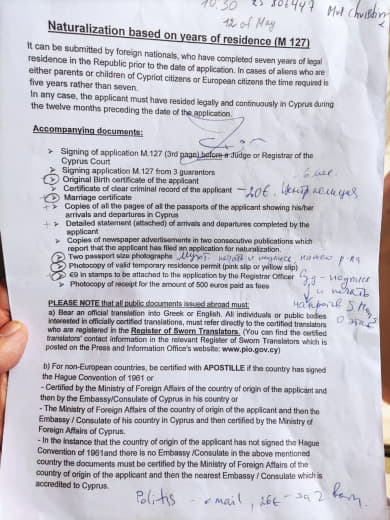 10.30
12 of May
Naturalization based on years of residence (M 127)
It can be submitted by foreign nationals, who have completed seven years of legal
residence in the Republic prior to the date of application. In cases of aliens who are
either parents or children of Cypriot citizens or European citizens the time required is
five years rather than seven.
In any case, the applicant must have resided legally and continuously in Cyprus during
the twelve months preceding the date of the application.
Accompanying documents:
➤ Signing of application M.127 (3rd page) before a Judge or Registrar of the
Cyprus Court
➤ Signing application M.127 from 3 guarantors
➤ Original Birth certificate of the applicant
➤ Certificate of clear criminal record of the applicant - 20€.
➤ Marriage certificate
➤ Copies of all the pages of all the passports of the applicant showing his/her
arrivals and departures in Cyprus
➤ Detailed statement (attached) of arrivals and departures completed by the
applicant
➤ Copies of newspaper advertisements in two consecutive publications which
report that the applicant has filed an application for naturalization.
➤ Two passport size photographs
➤ Photocopy of valid temporary residence permit (pink slip or yellow slip)
➤ €9 in stamps to be attached to the application by the Registrar Officer
➤ Photocopy of receipt for the amount of 500 euros paid as fees
PLEASE NOTE that all public documents issued abroad must:
a) Bear an official translation into Greek or English. All individuals or public bodies
interested in officially certified translations, must refer directly to the certified translators
who are registered in the Register of Sworn Translators. (You can find the certified
translators' contact information in the relevant Register of Sworn Translators which is
posted on the Press and Information Office's website: www.pio.gov.cy)
b) For non-European countries, be certified with APOSTILLE if the country has signed
the Hague Convention of 1961 or
- Certified by the Ministry of Foreign Affairs of the country of origin of the applicant and
then by the Embassy/Consulate of Cyprus in his country or
- The Ministry of Foreign Affairs of the country of origin of the applicant and then the
Embassy / Consulate of his country in Cyprus and then certified by the Ministry of
Foreign Affairs of Cyprus.
- In the instance that the country of origin of the applicant has not signed the Hague
Convention of 1961and there is no Embassy /Consulate in the above mentioned
country the documents must be certified by the Ministry of Foreign Affairs of the
country of origin of the applicant and then the nearest Embassy / Consulate which is
accredited to Cyprus.
Politis - email, 26€ - за 2